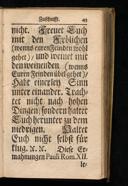 Zuschrifft. 49
nicht. Freuet Euch
mit den Frölichen
(wenns euren Feinden wohl
gehet /) und weinet mit
den weinenden. (wenns
Euren Feinden übel gehet/)
Habt einerley Sinn
unter einander. Trach-
tet nicht nach hohen
Dingen/ sondern haltet
Euch herunter zu dem
niedrigen. Haltet
Euch nicht selbst für
klug. ꝛc. ꝛc. Diese Er-
mahnungen Pauli Rom. XII.